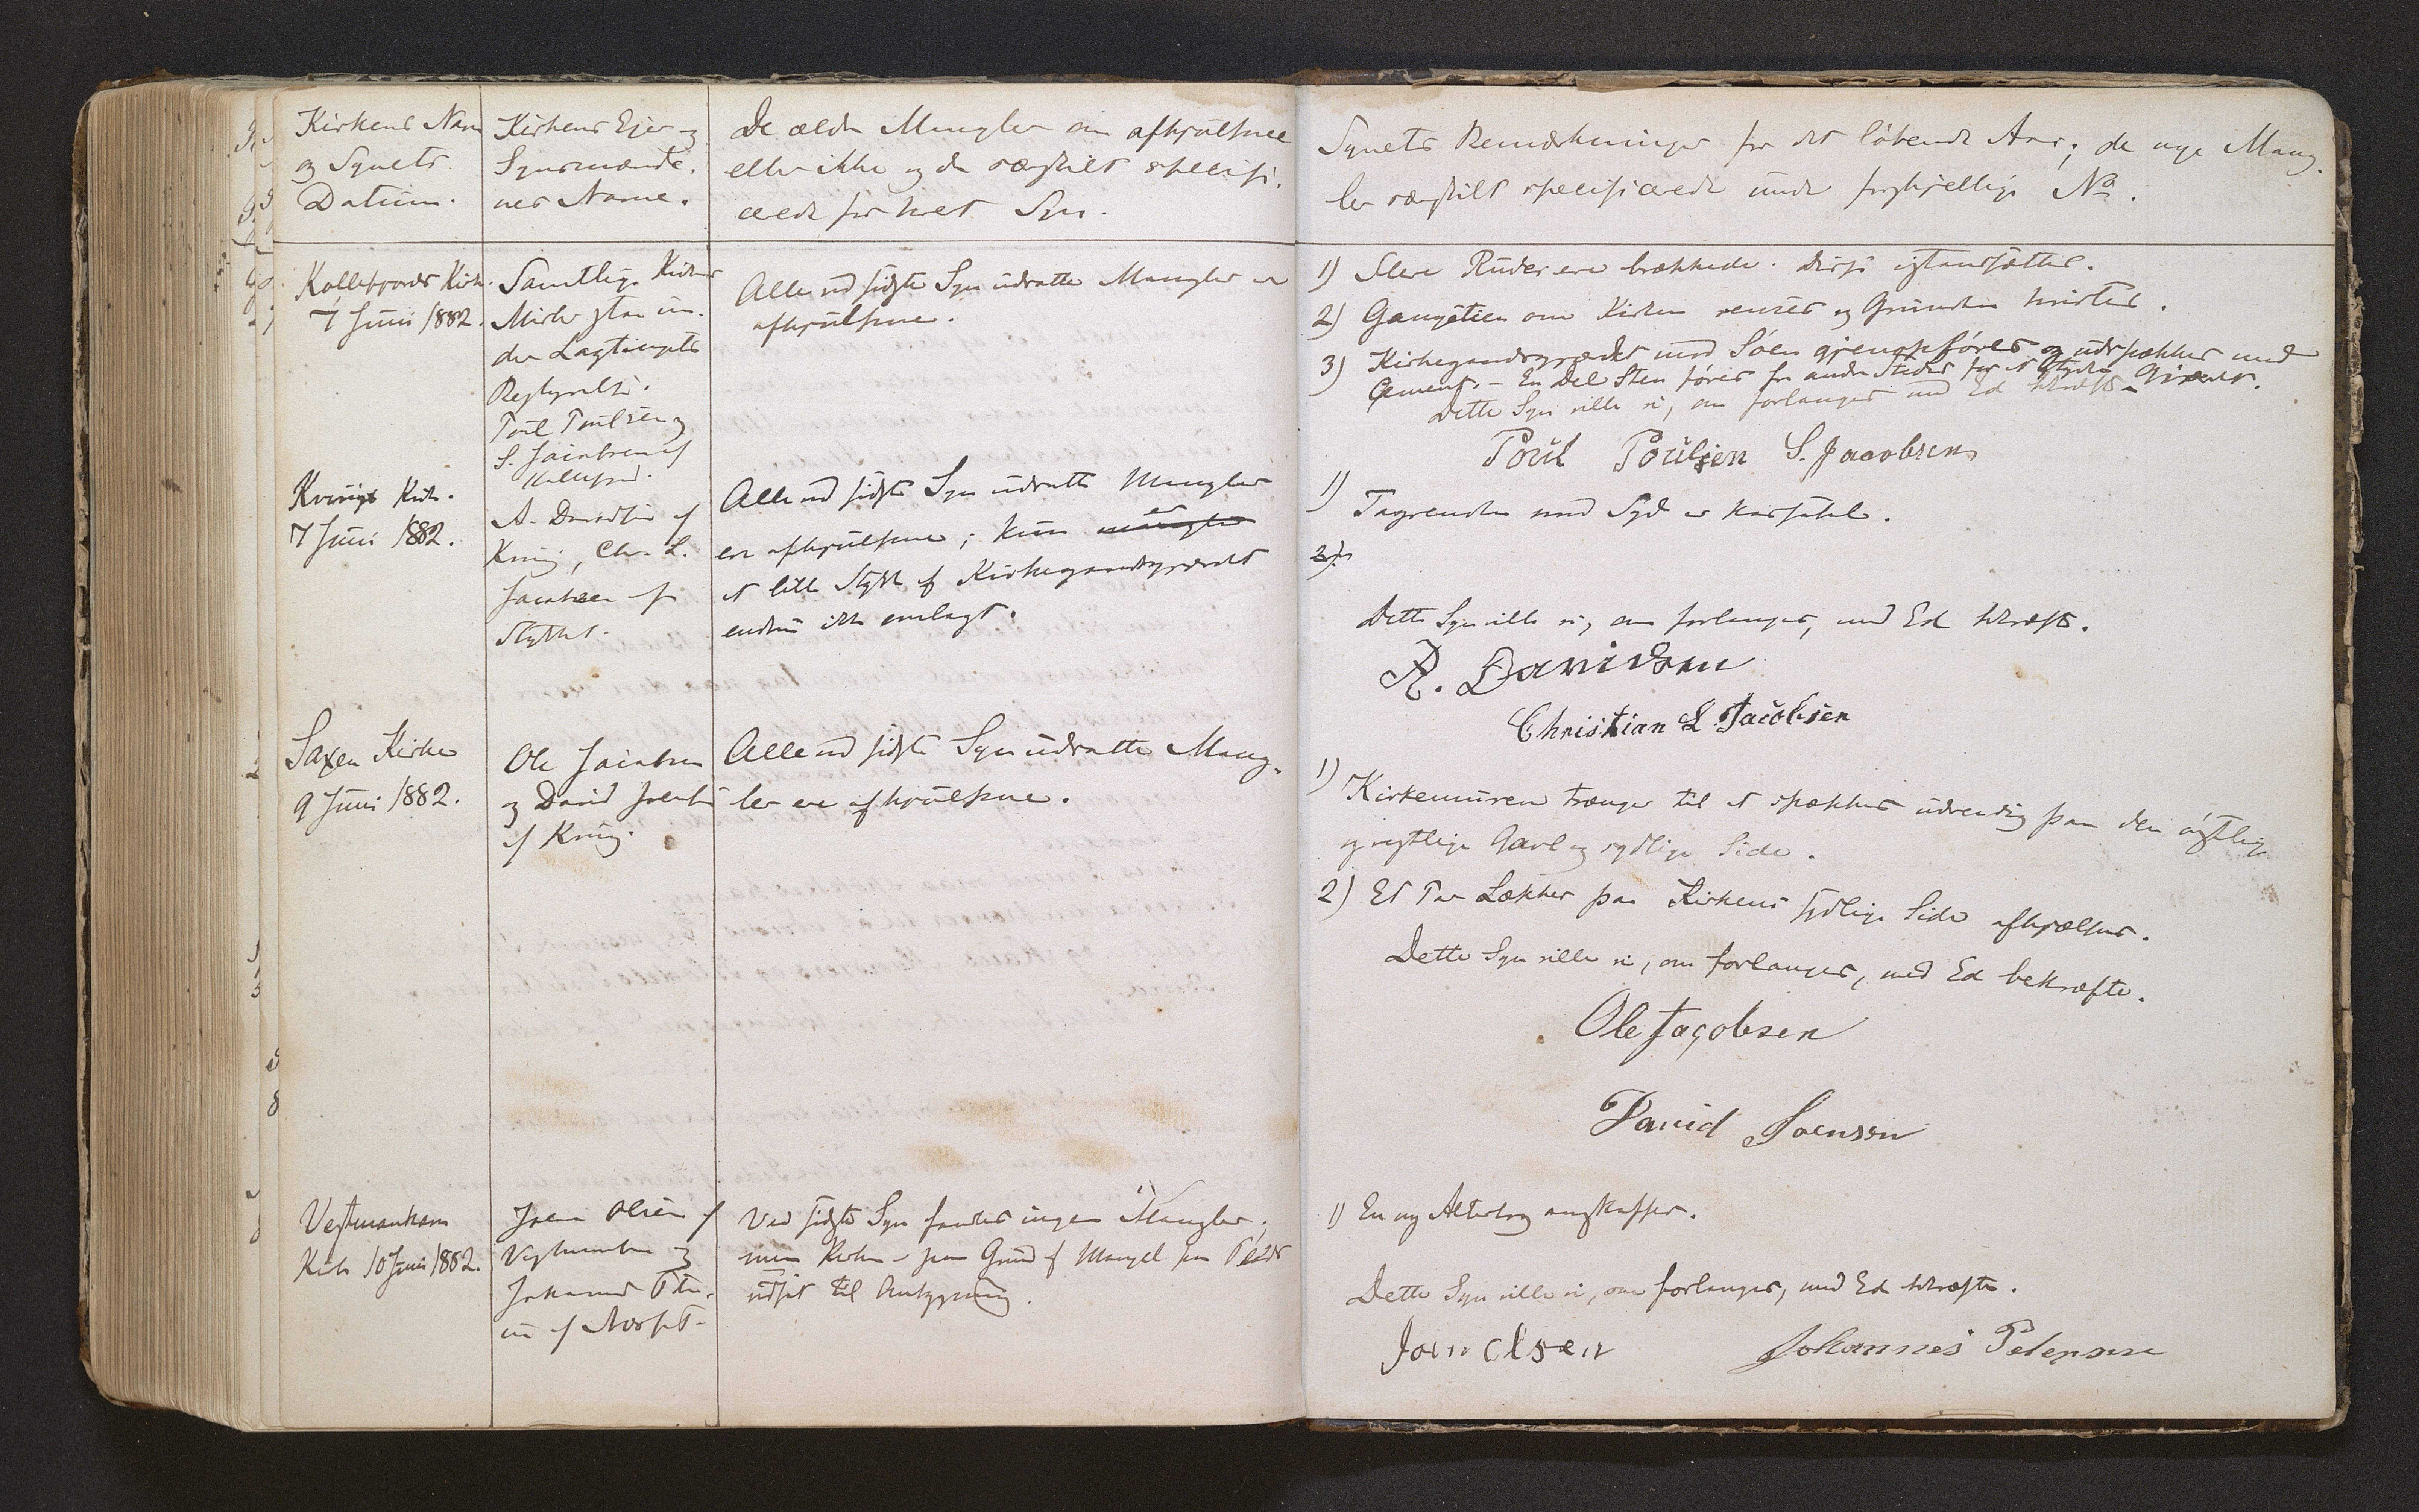 Kirkens Navn
og Synets
Datum.
Kirkens Ejer og
Synsmænde-
nes Navne.
De ældre Mangler om afhjulpne
eller ikke og da særskilt specifi-
cerede for hvert Syn.
Synets Bemærkninger for det löbende Aar; de nye Mang-
ler særskilt specificerede under forskjellige No.
Kollefjords Kirk.
7 Juni 1882.
Samtlige Kirker
Midr staa un-
der Lagtingets
Bestyrelse.
Poul Poulsen og
S. Jacobsen af
Kollefjord.
Alle ved sidste Syn udsatte Mangler er
afhjulpne.
1) Flere Ruder ere brækkede. Disse istandsættes.
2) Gangstien om Kirken renses og Grunden hvidtes.
3) Kirkegaardsgjærdet mod Söen gjenopföres og udspækkes med
Cement. - En Del Sten föres fra andre Steder for at styrke Gjærdet.
Dette Syn ville vi, om forlanges med Ed bekræfte
Poul Poulsen S. Jacobsen
Kvivigs Kirk.
7 Juni 1882.
A. Davidsen af
Kvivig, Chr. L.
Jacobsen af
Stykket.
Alle ved sidste Syn udsatte Mangler
ere afhjulpne; kun mangler er
et lille Stykke af Kirkegaardsgjærdet
endnu ikke omlagt.
1) Tagrenden mod Syd er brøstfæl.
2)
Dette Syn ville vi, om forlanges, med Ed bekræfte.
A. Davidsen
Christian L Jacobsen
Saxen Kirke
9 Juni 1882.
Ole Jacobsen
og David Joensen
af Kvivig.
Alle ved sidste Syn udsatte Mang-
ler ere afhjulpne.
1) Kirkemuren trænger til at spækkes udvendig paa den östlige
og vestlige Gavl og sydlige Side.
2) Et Par Lækker paa Kirkens sydlige Side afhjælpes.
Dette Syn ville vi, om forlanges, med Ed bekræfte.
Ole Jacobsen
David Joensen
Vestmanhavn
Kirk 10 Juni 1882.
Joen Olsen af
Vestmanhavn og
Johannes Peter-
sen af
Ved sidste Syn fandtes ingen Mangler;
men Kirken - paa Grund af Mangel paa Plads
udset til Ombygning.
1) En ny Alterbog anskaffes.
Dette Syn ville vi, om forlanges, med Ed bekræfte.
Joen Olsen Johannes Petersen